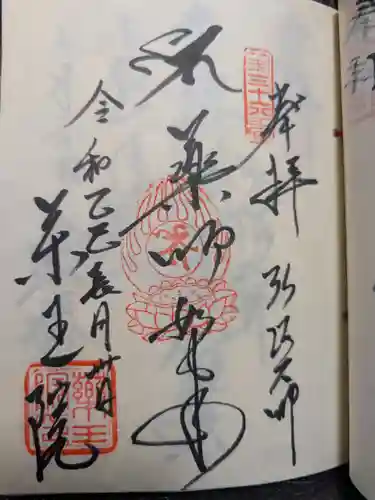 奉拝
弘法大師
第三十六番
薬師如来
令和乙巳
薬王院
薬王院
奉
拝